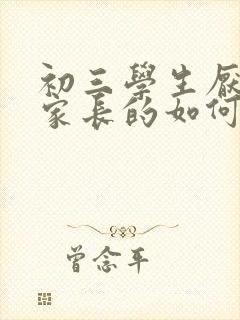 初三學生厭
家長的如何
曾念平